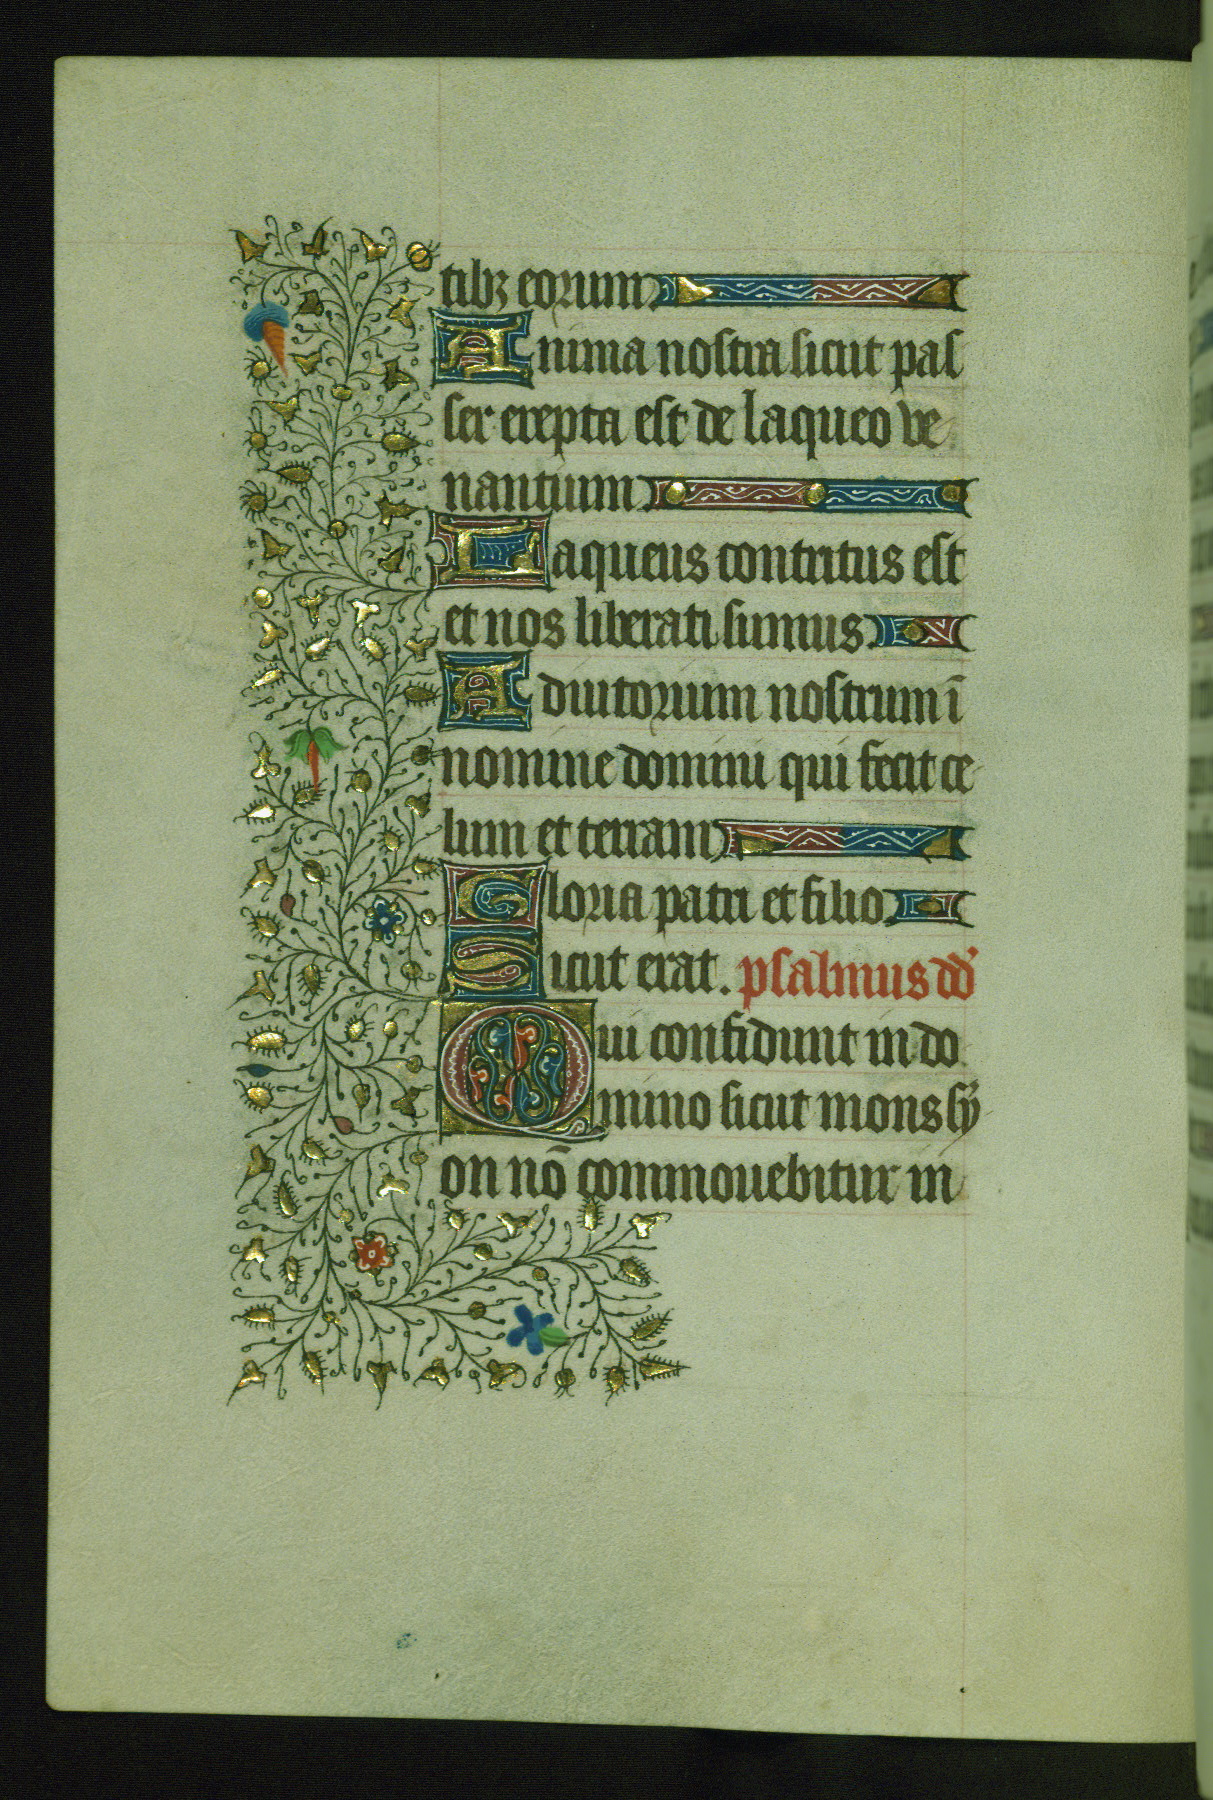 tibꝫ eorum
Anima nostra sicut pas
ser erepta est de laqueo ve
nantium
Laqueus contritus est
et nos liberati sumus.
Adiutorium nostrum ī
nomine domini qui fecit ce
lum et terram
Gloria patri et filio
Sicut erat. psalmus dd̕
Qui confidunt in do
mino sicut mons sy
on nō commouebitur in